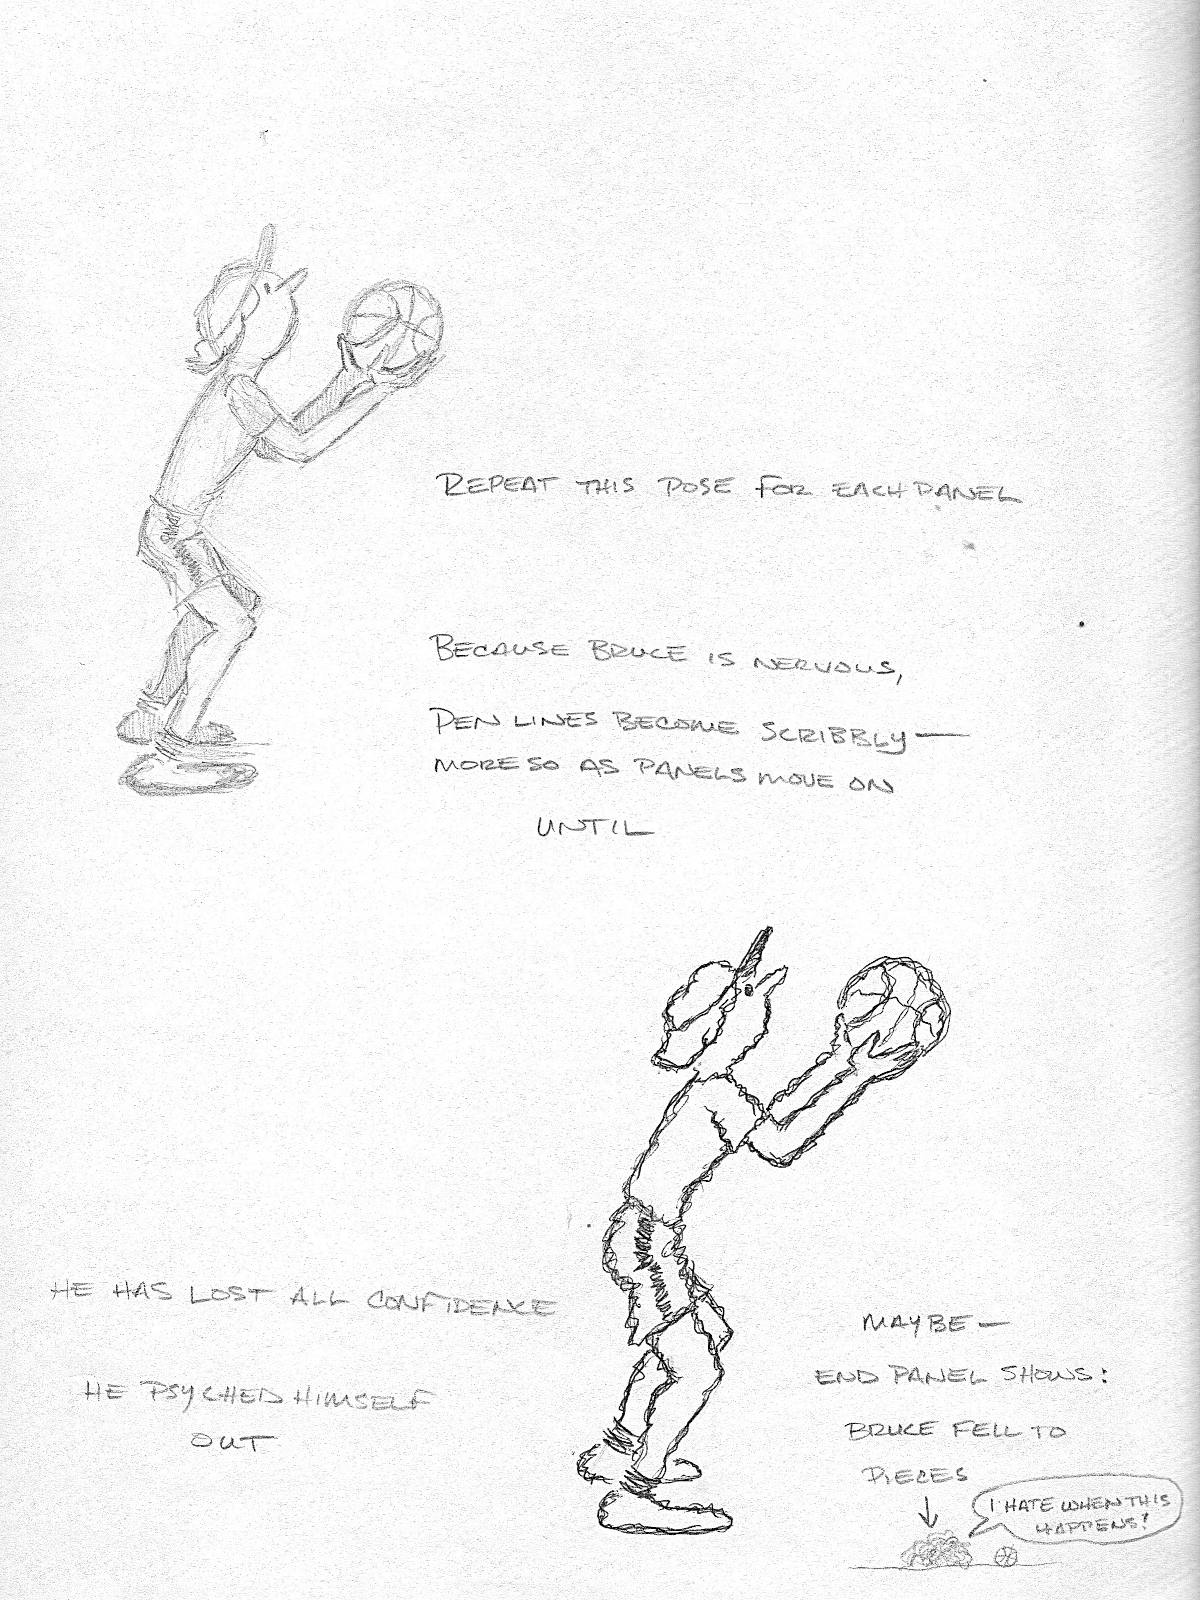 REPEAT THIS POSE FOR EACH PANEL
BECAUSE BRUCE IS NERVOUS,
PEN LINES BECOME SCRIBBLY—
MORE SO AS PANELS MOVE ON
UNTIL
HE HAS LOST ALL CONFIDENCE
HE PSYCHED HIMSELF
OUT
MAYBE—
END PANEL SHOWS:
BRUCE FELL TO
PIECES
I HATE WHEN THIS
HAPPENS!